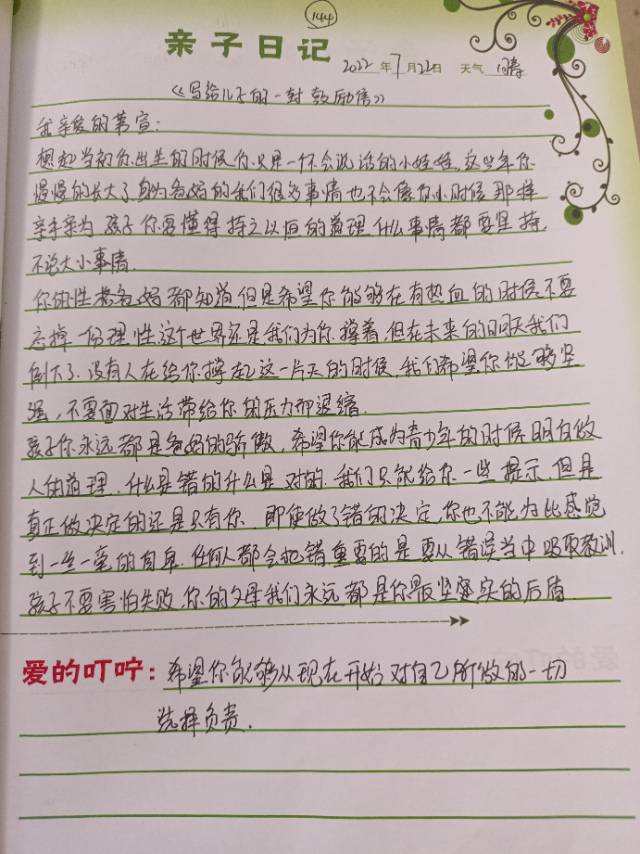 144
亲子日记
2022年7月22日 天气 晴
《写给儿子的一封鼓励信》
我亲爱的宣:
想起当初你出生的时候你只是一个不会说话的小娃娃,这些年你
慢慢的长大了,身为爸妈的我们很多事情也不会像你小时候那样
亲手亲为 孩子你要懂得持之以恒的道理,什么事情都要坚持,
不论大小事情.
你的性格爸妈都知道但是希望你能够在有热血的时候不要
忘掉一份理性这个世界还是我们为你撑着,但在未来的明天我们
倒下了.没有人在给你撑起这一片天的时候,我们希望你能够坚
强,不要面对生活带给你的压力而退缩.
孩子你永远都是爸妈的骄傲,希望你能成为青少年的时候明白做
人的道理,什么是错的什么是对的.我们只能给你一些提示,但是
真正做决定的还是只有你,即使做了错的决定,你也不能为此感觉
到一丝一毫的自卑.任何人都会犯错重要的是要从错误当中吸取教训.
孩子不要害怕失败,你的父母我们永远都是你最坚实的后盾.
爱的叮咛: 希望你能够从现在开始对自己所做的一切
选择负责.